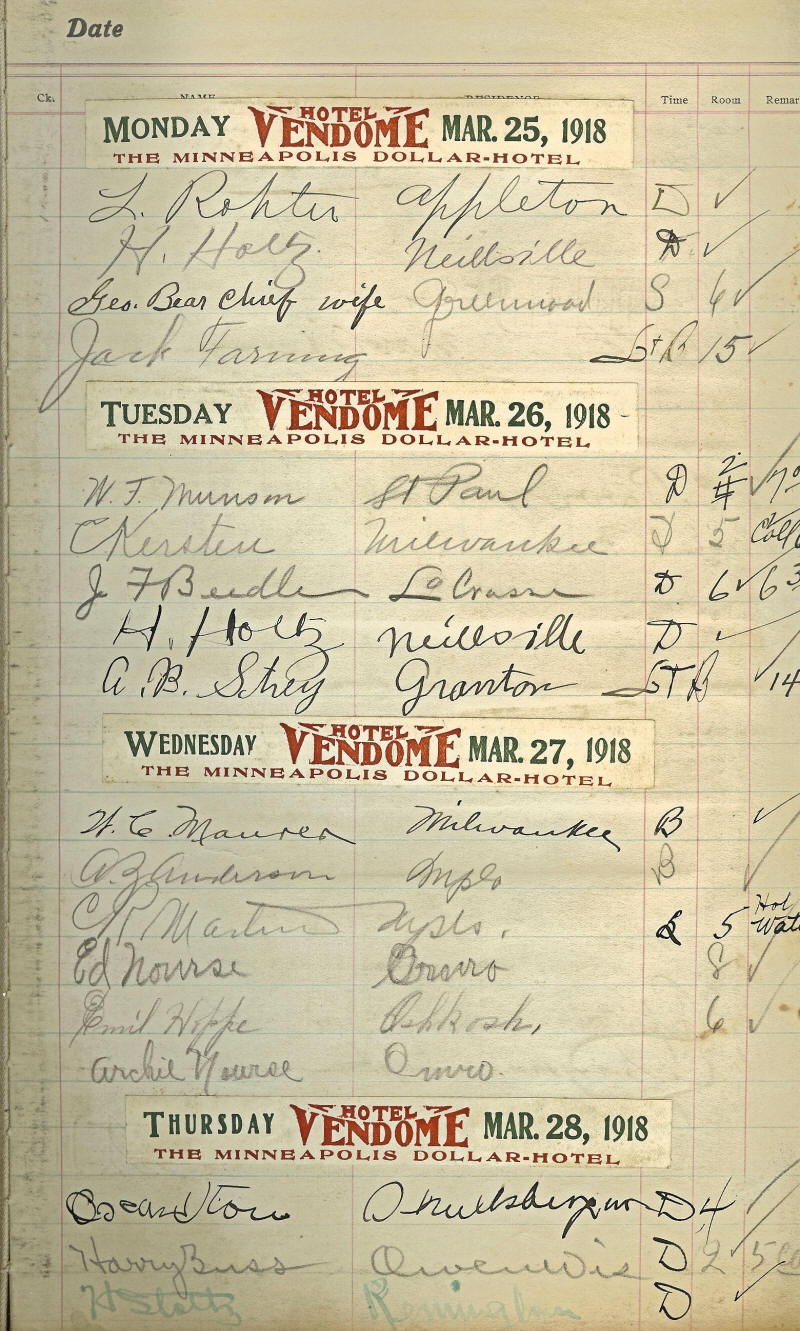 Date
Ck. NAME RESIDENCE Time Room Remar
MONDAY HOTEL VENDOME MAR. 25, 1918
THE MINNEAPOLIS DOLLAR-HOTEL
L. Rohter Appleton D ✓
H. Holtz. Neillsville D ✓
Geo. Bear Chief wife Greenwood S 6 ✓
Jack Farning L+B 15 ✓
TUESDAY HOTEL VENDOME MAR. 26, 1918
THE MINNEAPOLIS DOLLAR-HOTEL
W. F. Munson St Paul D 2 ✓
C Kersten Milwaukee D 5
J F Beedle La Crosse D. 6 ✓ 6
H. Holtz Neillsville D ✓
A. B. Strey Granton L+B 14
WEDNESDAY HOTEL VENDOME MAR. 27, 1918
THE MINNEAPOLIS DOLLAR-HOTEL
W. C. Maurer Milwaukee B ✓
A. Z Anderson Mpls B ✓
C R Martin Mpls. 5 Hot Wat
Ed Nourse Omro 8 ✓
Emil Hoppe Oshkosh, 6 ✓
Archie Nourse Omro.
THURSDAY HOTEL VENDOME MAR. 28, 1918
THE MINNEAPOLIS DOLLAR-HOTEL
Oscar D 4
Harry Buss Owen Wis D 2 ✓ 5
D ✓